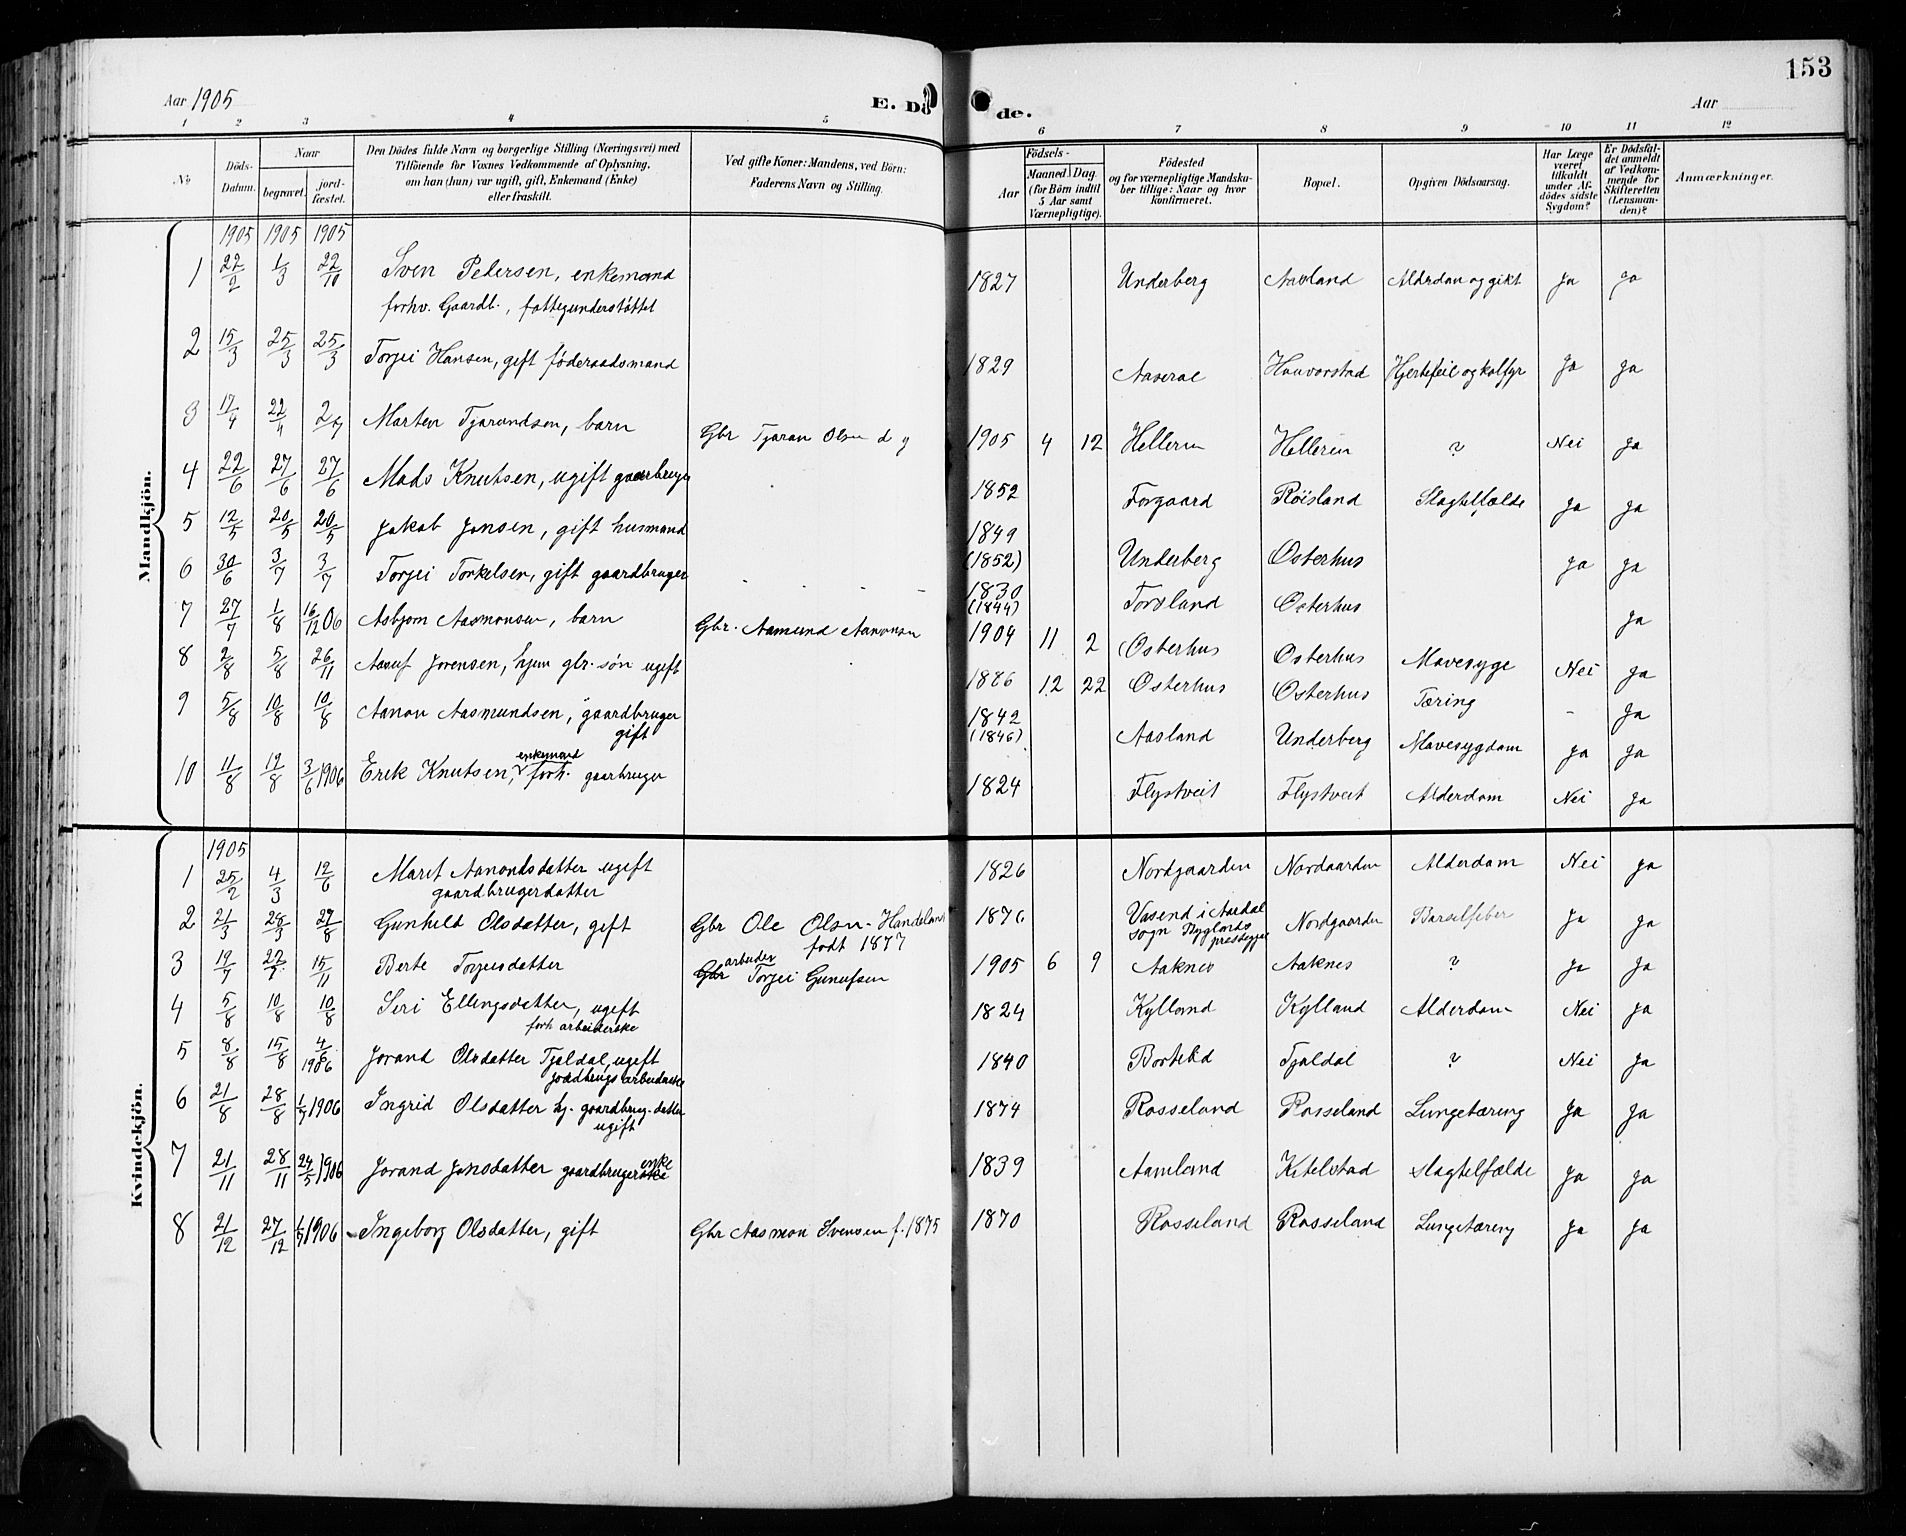 153
Aar 1905
E. Dö
de.
Aar
1 2 3 4 5 6 7 8 9 10 11 12
No
Döds-Datum.
Naar
begravet.
jord-fæstet.
Den Dödes fulde Navn og borgerlige Stilling (Næringsvei) med
Tilföiende for Voxnes Vedkommende af Oplysning,
om han (hun) var ugift, gift, Enkemand (Enke)
eller fraskilt.
Ved gifte Koner: Mandens, ved Börn:
Faderens Navn og Stilling.
Födsels-
Aar
Maaned. Dag.
(for Börn indtil
5 Aar samt
Værnepligtige).
Födested
og for værnepligtige Mandska-
ber tillige: Naar og hvor
konfirmeret.
Bopæl.
Opgiven Dödsaarsag.
Har Læge
været
tilkaldt
under Af-
dödes sidste
Sygdom?
Er Dödsfal-
det anmeldt
af Vedkom-
mende for
Skifteretten
(Lensman-
den)?
Anmærkninger.
Mandkjön.
1905 1905 1905
1 22/2 1/3 22/10 Sven Petersen, enkemand 1827 Underberg Aasland Alderdom og gikt Ja Ja
forhv. Gaardb., fattigunderstøttet
2 15/3 25/3 25/3 Torjei Hansen, gift føderaadsmand 1829 Aaseral Haavorstad Hjertefeil og kolfyr Ja Ja
3 17/4 22/4 2/7 Marten Tjarandsen, barn Gbr Tjaran Olsen d y 1905 4 12 Helleren Helleren ? Nei Ja
4 22/6 27/6 27/6 Mads Knutsen, ugift gaarbruger 1852 Forgaard Røisland Slagtilfælde Ja Ja
5 12/5 20/5 20/5 Jakob Jonsen, gift husmand 1849
(1852) Underberg Osterhus Ja Ja
6 30/6 3/7 3/7 Torjei Torkelsen, gift gaardbruger 1830
(1844) Forsland Osterhus Ja
7 27/7 1/8 16/12 06 Asbjorn Aasmonsen, barn Gbr. Aamund Aanonsen 1904 11 2 Osterhus Osterhus Mavesyge Nei Ja
8 2/8 5/8 26/11 Aasuf Jorensen, hjem gbr. søn ugift 1886 12 22 Osterhus Osterhus Tæring - Ja
9 5/8 10/8 10/8 Aanon Aasmundsen, gaardbruger 1842
gift (1846) Aasland Underberg Mavesygdom Ja Ja
10 11/8 19/8 3/6 1906 Erik Knutsen, enkemand forh. gaarbruger 1824 Flystveit Flystveit Alderdom Nei Ja
Kvindekjön.
1905
1 25/2 4/3 12/6 Marit Aanondsdatter ugift 1826 Nordgaarden Nordaarden Alderdom Nei Ja
gaardbrugerdatter
2 21/3 28/3 29/8 Gunhild Olsdatter, gift Gbr Ole Olsen Handeland 1876 Vasend i Aardal Nordgaarden Barselfeber Ja Ja
født 1877 sogn Byglands
prestegjel
3 19/7 27/7 15/11 Berte Torjeisdatter Gbr arbeider Torjei Gunufsen 1905 6 9 Aaknes Aaknes ? Ja Ja
4 5/8 10/8 10/8 Siri Ellingsdatter, ugift 1824 Kylland Kylland Alderdom Nei Ja
forh arbeiderske
5 8/8 15/8 4/6 1906 Jorand Olsdatter Tjaldal, ugift 1840 Bortelid Tjaldal ? Nei Ja
jordbrugs arbeiderske
6 21/8 28/8 1/7 1906 Ingrid Olsdatter hj. gaardbrug. datter 1874 Rosseland Rosseland Lungetæring Ja Ja
ugift
7 21/11 28/11 24/5 1906 Jorand Jonsdatter gaardbrugerske enke 1839 Aamland Kitelstad Slagtelfælde Ja Ja
8 21/12 27/12 1/7 1906 Ingeborg Olsdatter, gift Gbr Aasmon Svensen f. 1875 1870 Rosseland Rosseland Lungetæring Ja Ja